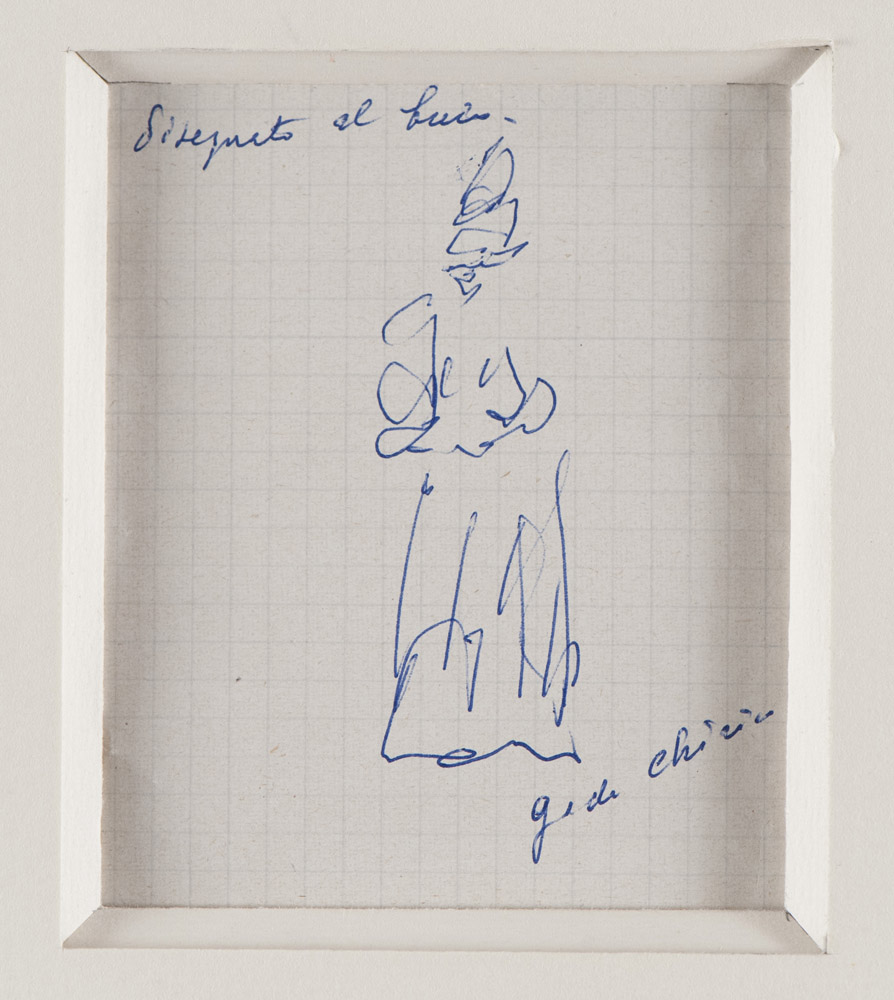 disegnato al buio -
g. de chirico